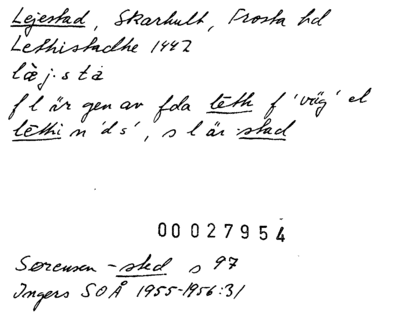 Lejestad, Skarhult, Frosta hd
Lethistadhe 1442
læ̀j.stá
fl är gen av fda leth f 'väg' el
lēthi n 'ds', sl är -stad
00027954
Sørensen -sted s 97
Ingers SOÅ 1955-1956:31